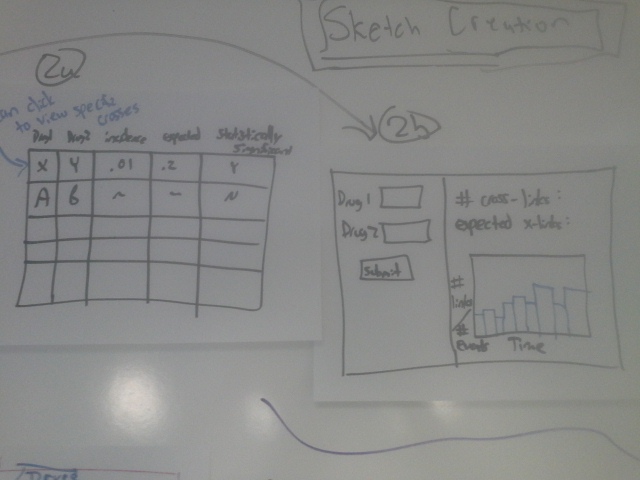 Sketch Creation
2a
can click
to view specific
crosses
Drug1 Drug2 incidence expected Statistically
Significant
X Y .01 .2 Y
A B ~ ~ N
2b
Drug 1
Drug 2
Submit
# cross-links:
expected x-links:
#
links/
#
Events
Time